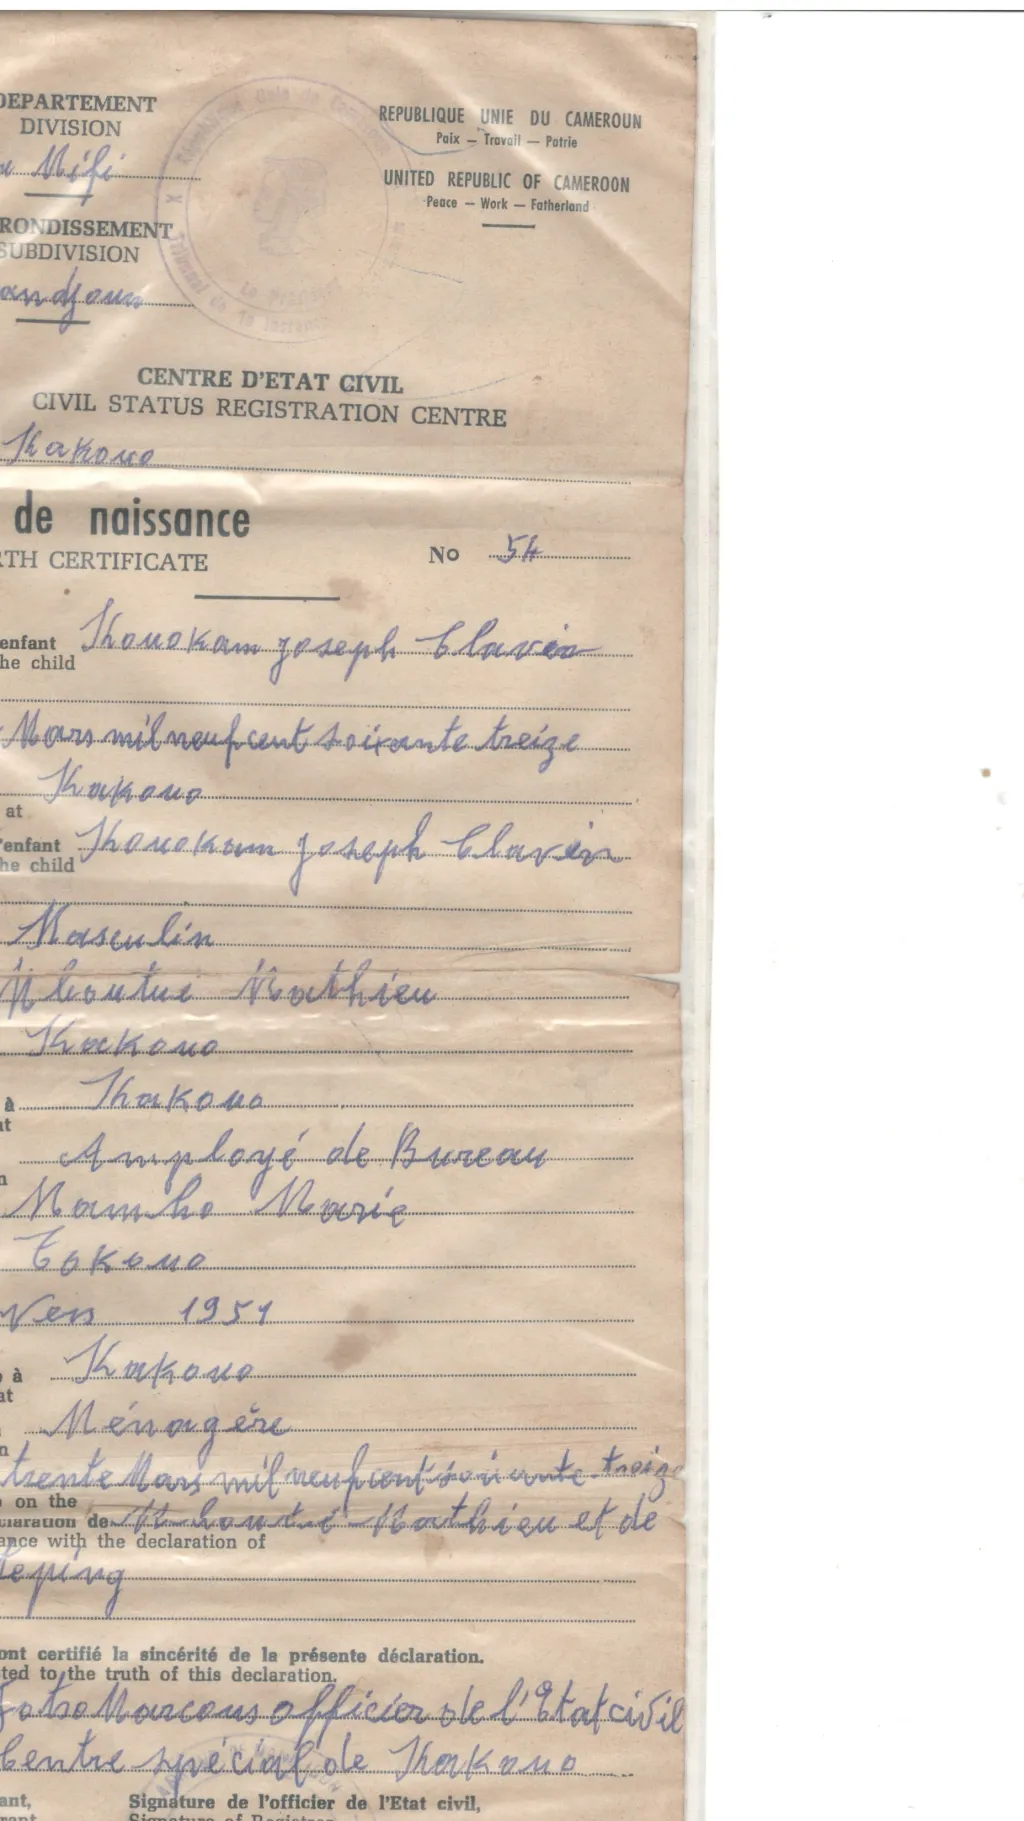 DEPARTEMENT
DIVISION
Mifi
RONDISSEMENT
SUBDIVISION
andjoun
République Unie du Cameroun
Tribunal de 1e Instance
Le Président
REPUBLIQUE UNIE DU CAMEROUN
Paix — Travail — Patrie
UNITED REPUBLIC OF CAMEROON
Peace — Work — Fatherland
CENTRE D'ETAT CIVIL
CIVIL STATUS REGISTRATION CENTRE
Kakouo
de naissance
RTH CERTIFICATE
No 54
enfant Kouokam joseph Claver
he child
Mars mil neuf cent soixante treize
Kakouo
at
l'enfant Kouokam joseph Claver
he child
Masculin
Mathieu
Kakouo
à Kakouo
at
Employé de Bureau
n
Mamho Marie
Kakouo
Vers 1951
à Kakouo
at
Ménagère
n
trente Mars mil neuf cent soixante-treize
on the
claration de Mathieu et de
ance with the declaration of
eping
ont certifié la sincérité de la présente déclaration.
ted to the truth of this declaration.
Fotso Marcous officier de l'Etat civil
Centre spécial de Kakouo
ant,
rant
Signature de l'officier de l'Etat civil,
Signature of Registrar